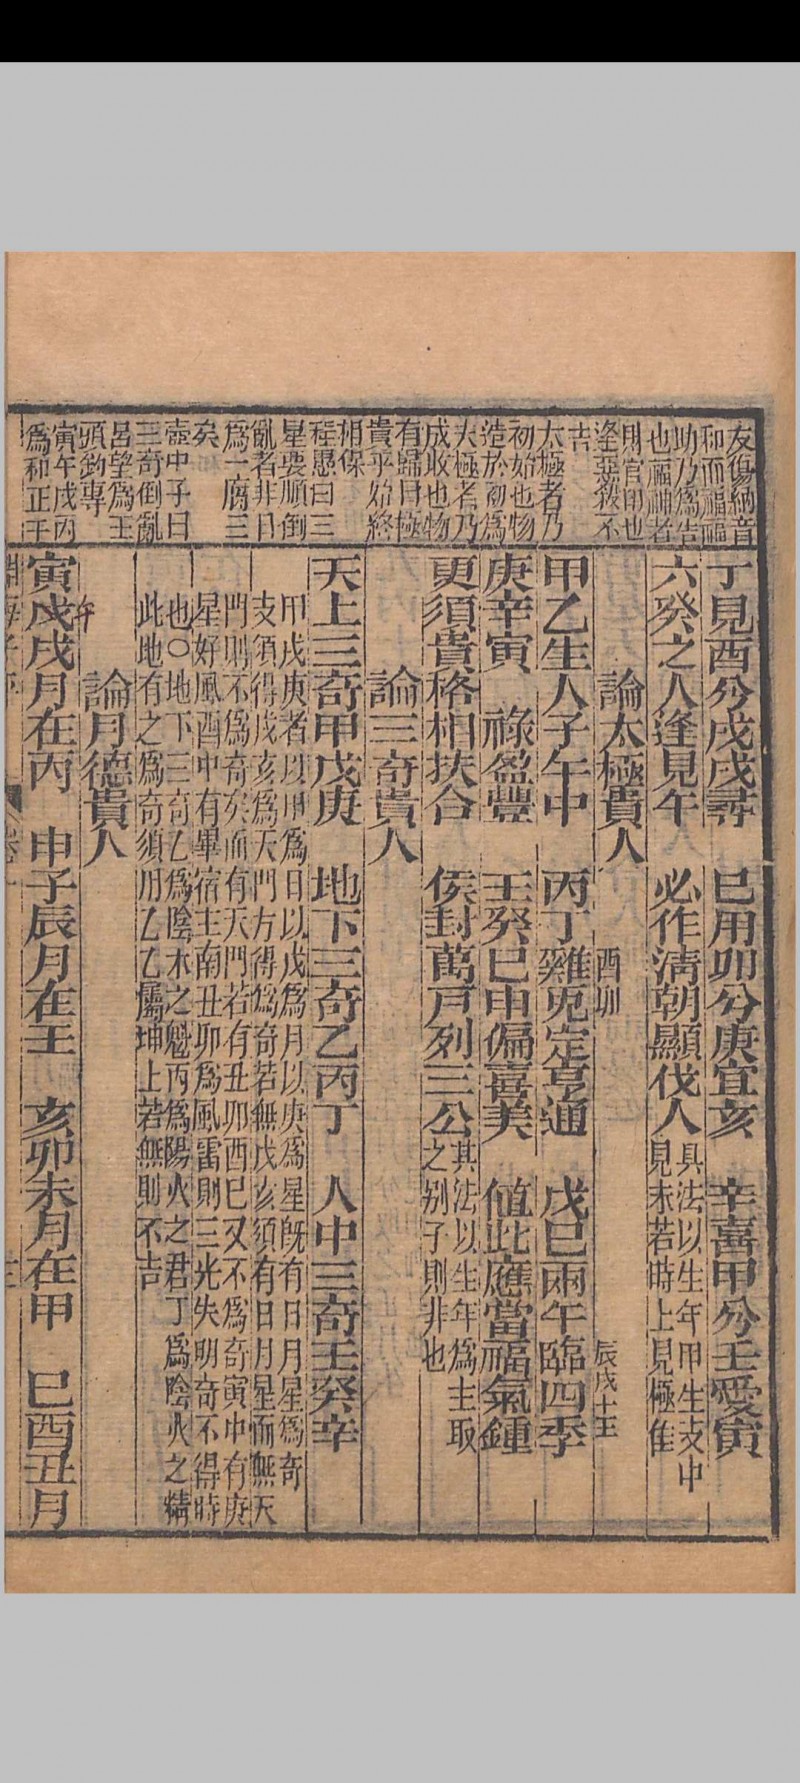 友傷納音
和而福福
助乃爲吉
也福神者
則官印也
逢惡殺不
吉
太極者乃
初始也物
造於初爲
太極者乃
成收也物
有歸曰極
貴乎始終
相保
程愚曰三
星要順倒
亂者非日
爲一腐三
矣
壺中子曰
三奇倒亂
呂望爲王
頭釣專
寅午戌丙
爲和正千
丁見酉兮戊戌尋 巳用卯兮庚宜亥 辛喜甲兮壬愛寅
六癸之人逢見午 必作清朝顯伐人
具法以生年甲生支中
見未若時上見極隹
論太極貴人 酉卯 辰戌十王
甲乙生人子午中 丙丁雞兎定亨通 戊巳兩午臨四季
庚辛寅 祿盈豐 壬癸巳申偏喜美 値此應當福氣鍾
更須貴格相扶合 侯封萬戸列三公
其法以生年爲主取
之别子則非也
論三奇貴人
天上三奇甲戊庚 地下三奇乙丙丁 人中三奇壬癸辛
甲戌庚者以甲爲日以戊爲月以庚爲星旣有日月星爲奇
支須得戌亥爲天門方得爲奇若無戊亥須有日月星而無天
門則不爲奇矣而有天門若有丑卯酉巳又不爲奇寅中有庚
星好風酉中有畢宿主南丑卯爲風雷則三光失明奇不得時
也○地下三奇乙爲陰木之魁丙爲陽火之君丁爲陰火之精
此地有之爲奇須用乙乙屬坤上若無則不吉
論月德貴人
寅戌戌月在丙 申子辰月在壬 亥卯未月在甲 巳酉丑月
午